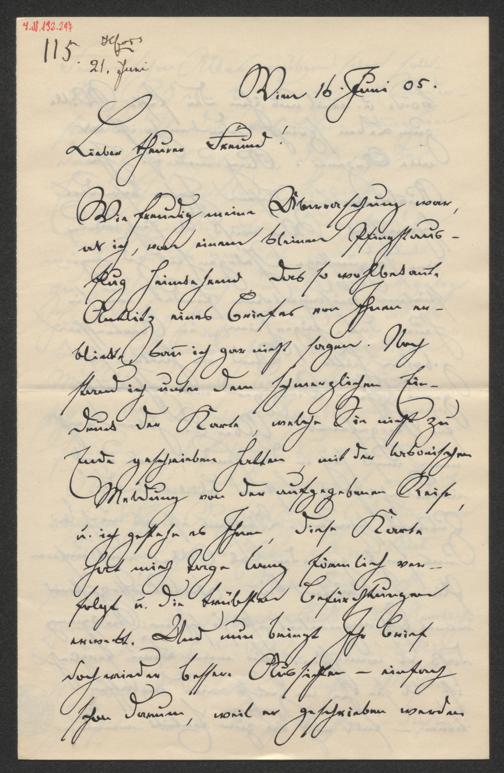 4.H.192.247
115.
21. Juni
Wien 16. Juni 05.
Lieber theurer Freund!
Wie freudig meine Überraschung war,
als ich, von einem kleinen Pfingstaus-
flug heimkehrend das so wohlbekannte
Antlitz eines Briefes von Ihnen er-
blickte, kann ich gar nicht sagen. Noch
stand ich unter dem schmerzlichen Ein-
druck der Karte, welche Sie nicht zu
Ende geschrieben hatten, mit der lakonischen
Meldung von der aufgegebenen Reise,
u. ich gestehe es Ihnen, diese Karte
hat mich tage lang förmlich ver-
folgt u. die trübsten Befürchtungen
erweckt. Und nun bringt Ihr Brief
doch wieder bessere Aussichten – einfach
schon darum, weil er geschrieben werden